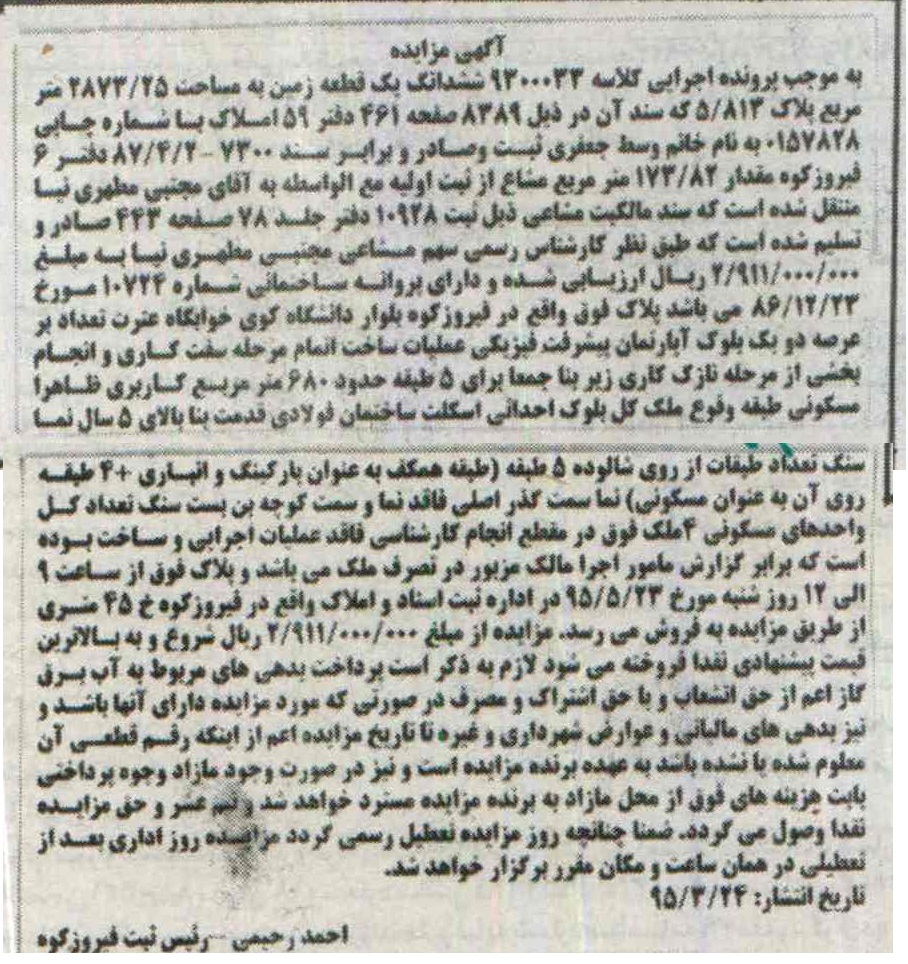 آگهی مزایده
به موجب پرونده اجرایی کلاسه ۹۳۰۰۰۳۳ ششدانگ یک قطعه زمین به مساحت ۲۸۷۳/۲۵ متر
مربع پلاک ۵/۸۱۳ که سند آن در ذیل ۸۳۸۹ صفحه ۴۶۱ دفتر ۵۹ املاک با شماره چاپی
۰۱۵۷۸۲۸ به نام خانم وسط جعفری ثبت وصادر و برابر سند ۷۳۰۰ – ۸۷/۴/۲ دفتر ۶
فیروزکوه مقدار ۱۷۳/۸۲ متر مربع مشاع از ثبت اولیه مع الواسطه به آقای مجتبی مطهری نیا
منتقل شده است که سند مالکیت مشاعی ذیل ثبت ۱۰۹۲۸ دفتر جلد ۷۸ صفحه ۴۴۳ صادر و
تسلیم شده است که طبق نظر کارشناس رسمی سهم مشاعی مجتبی مطهری نیا به مبلغ
۲/۹۱۱/۰۰۰/۰۰۰ ریال ارزیابی شده و دارای پروانه ساختمانی شماره ۱۰۷۲۴ مورخ
۸۶/۱۲/۲۳ می باشد پلاک فوق واقع در فیروزکوه بلوار دانشگاه کوی خوابگاه عترت تعداد بر
عرصه دو یک بلوک آپارتمان پیشرفت فیزیکی عملیات ساخت اتمام مرحله سفت کاری و انجام
بخشی از مرحله نازک کاری زیر بنا جمعا برای ۵ طبقه حدود ۶۸۰ متر مربع کاربری ظاهرا
مسکونی طبقه وقوع ملک کل بلوک احداثی اسکلت ساختمان فولادی قدمت بنا بالای ۵ سال نما
سنگ تعداد طبقات از روی شالوده ۵ طبقه (طبقه همکف به عنوان پارکینگ و انباری +۴ طبقه
روی آن به عنوان مسکونی) نما سمت گذر اصلی فاقد نما و سمت کوچه بن بست سنگ تعداد کل
واحدهای مسکونی ۴ملک فوق در مقطع انجام کارشناسی فاقد عملیات اجرایی و ساخت بوده
است که برابر گزارش مامور اجرا مالک مزبور در تصرف ملک می باشد و پلاک فوق از ساعت ۹
الی ۱۲ روز شنبه مورخ ۹۵/۵/۲۳ در اداره ثبت اسناد و املاک واقع در فیروزکوه خ ۴۵ متری
از طریق مزایده به فروش می رسد. مزایده از مبلغ ۲/۹۱۱/۰۰۰/۰۰۰ ریال شروع و به بالاترین
قیمت پیشنهادی نقدا فروخته می شود لازم به ذکر است پرداخت بدهی های مربوط به آب برق
گاز اعم از حق انشعاب و یا حق اشتراک و مصرف در صورتی که مورد مزایده دارای آنها باشد و
نیز بدهی های مالیاتی و عوارض شهرداری و غیره تا تاریخ مزایده اعم از اینکه رقم قطعی آن
معلوم شده یا نشده باشد به عهده برنده مزایده است و نیز در صورت وجود مازاد وجوه پرداختی
بابت هزینه های فوق از محل مازاد به برنده مزایده مسترد خواهد شد و نیم عشر و حق مزایده
نقدا وصول می گردد. ضمنا چنانچه روز مزایده تعطیل رسمی گردد مزایده روز اداری بعد از
تعطیلی در همان ساعت و مکان مقرر برگزار خواهد شد.
تاریخ انتشار: ۹۵/۳/۲۴
احمد رحیمی – رئیس ثبت فیروزکوه